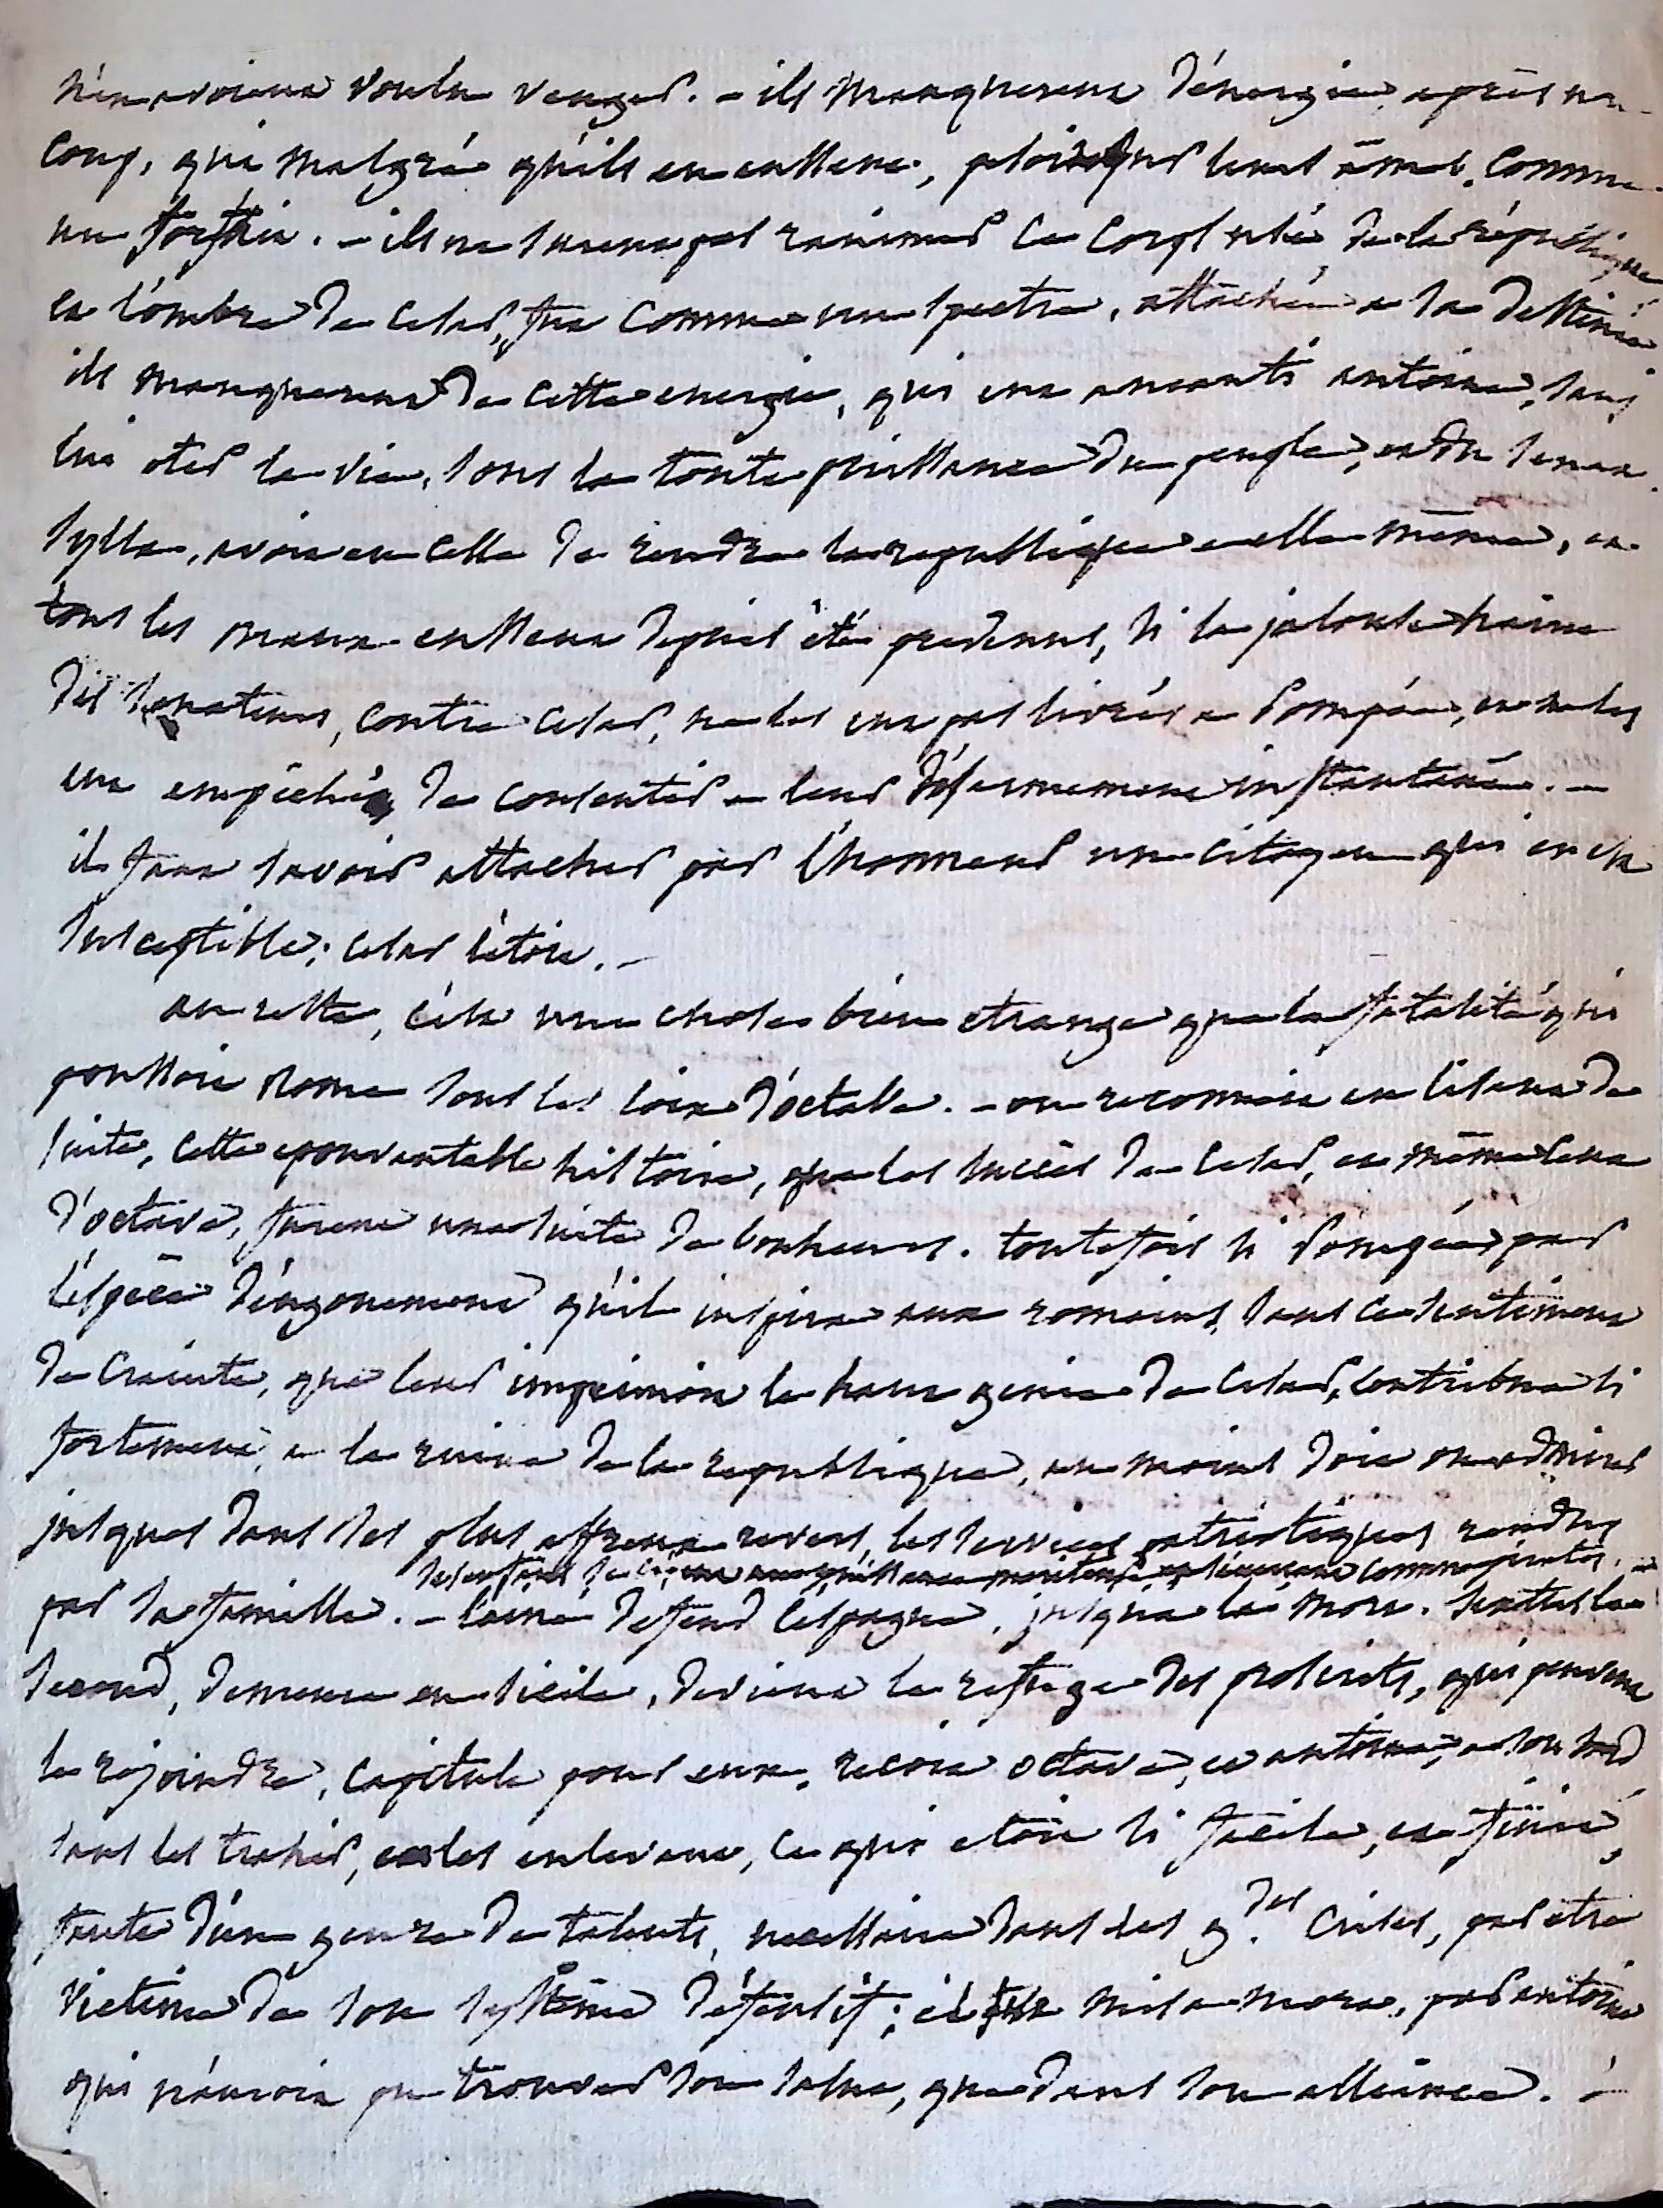 n'en avoient voulu venger. - ils manquerent d'énergie après un
coup, qui malgré qu'ils en eussent, poursuivit leurs âmes. comme
un forfait. - ils ne surent pas ranimer le corps usé de la république
et l'ombre de Cesar, fut comme un spectre, attaché a sa destinée
ils manquerent de cette energie, qui eut aneanti antoine, sans
lui oter la vie, sous la toute puissance du peuple, et du senat.
sylla, avoit eu celle de rendre la republique a elle même, et
tous les maux eussent depuis été prevenus, si la jalouse haine
des senateurs, contre cesar, ne les eut pas livrés a Pompée, et ne les
eut empêchés de consentir a leur désarmement instantané. -
il faut savoir attacher par l'honneur un citoyen qui en est
susceptible; cesar l'étoit. -
au reste, c'est une chose bien etrange que la fatalité qui
poussoit Rome sous les loix d'octave. - on reconnoit en lisant de
suite, cette epouvantable histoire, que les succès de Cesar, et même ceux
d'octave, furent une suite de bonheurs. toutefois si Pompée, par
l'espèce d'engouement qu'il inspira aux romains, dans ce sentiment
de crainte, que leur imprimoit le haut genie de Cesar, contribua si
fortement, a la ruine de la republique, au moins doit on admirer
jusques dans ses plus affreux revers, les services patriotiques rendus
par sa famille. - l'ainé defend l'espagne, jusqu'a la mort. sextus le
second, demeure en sicile, devient le refuge des proscrits, qui peuvent
le rejoindre, capitule pour eux, recoit octave, et antoine, a son bord
sans les trahir, et les enlevant, ce qui etoit si facile, et finit,
faute d'un genre de talents, necessaire dans les g.des crises, par etre
victime de son système défensif; il est mis a mort, par antoine
qui n'auroit pu trouver son salut, que dans son alliance.